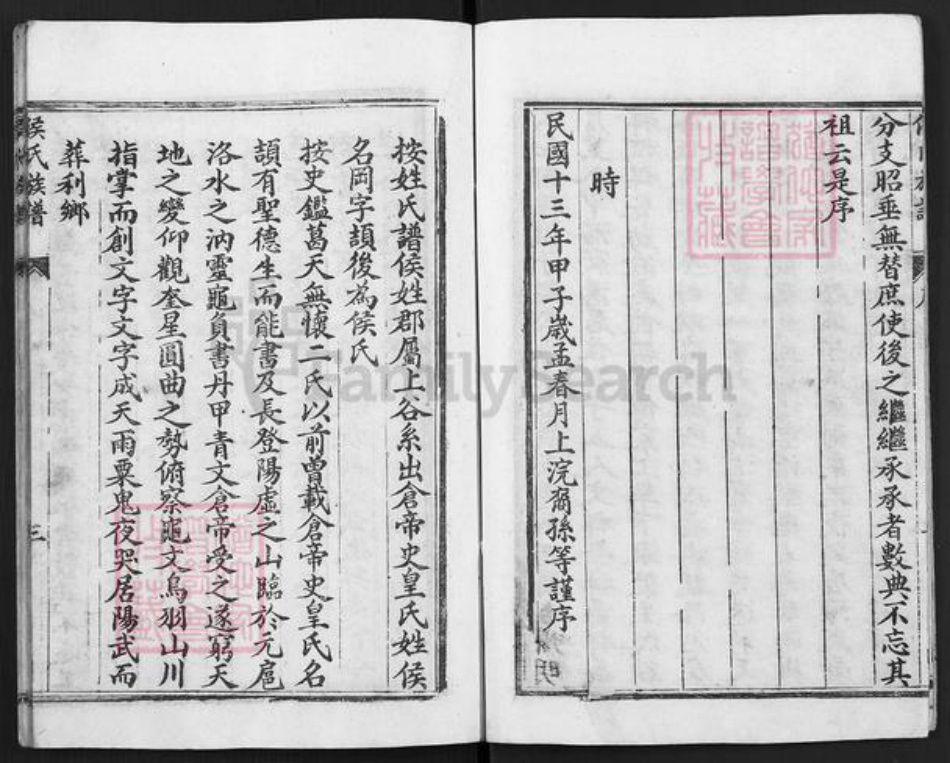 分支昭垂無替庶使後之繼繼承承者數典不忘其
祖云是序
時
民國十三年甲子歲孟春月上浣裔孫等謹序
按姓氏譜侯姓郡屬上谷系出倉帝史皇氏姓侯
名岡字頡後為侯氏
按史鑑葛天無懷二氏以前曾載倉帝史皇氏名
頡有聖德生而能書及長登陽虛之山臨於元扈
洛水之汭靈龜負書丹甲青文倉帝受之遂窮天
地之變仰觀奎星圓曲之勢俯察龜文鳥羽山川
指掌而創文字文字成天雨粟鬼夜哭居陽武而
葬利鄉
侯氏族譜
三
FamilySearch